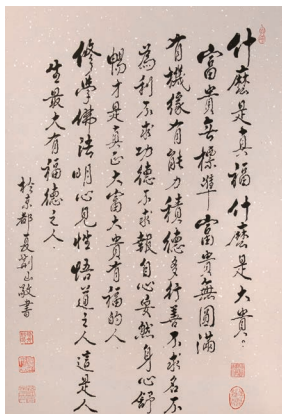 什麼是真福什麼是大貴
富貴無標準富貴無圓滿
有機緣有能力積德多行善不求名不
為利不求功德不求報自心安然身心舒
暢才是真正大富大貴有福的人
修學佛法明心見性悟道之人這是人
生最大有福德之人
於京都夏荊山敬書